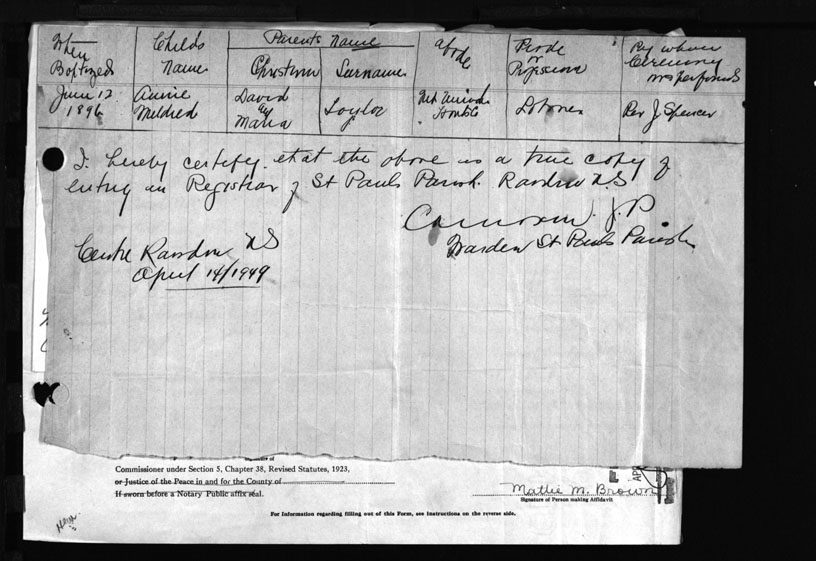 When Baptized
Childs Name
Parents Name
Christian
Surname
abode
Trade or Profession
By whom Ceremony was performed
June 12 1896
Annie Mildred
David
Maria
Taylor
Mt Uniacke
Rev J Spencer
I hereby certify that the above is a true copy of
entry in Registrar of St Pauls Parish. Rawdon N.S
J.P
Warden St Pauls Parish
Centre Rawdon NS
April 14/1949
Commissioner under Section 5, Chapter 38, Revised Statutes, 1923,
or Justice of the Peace in and for the County of
If sworn before a Notary Public affix seal.
Mattie M. Brown
Signature of Person making Affidavit
For Information regarding filling out of this Form, see Instructions on the reverse side.